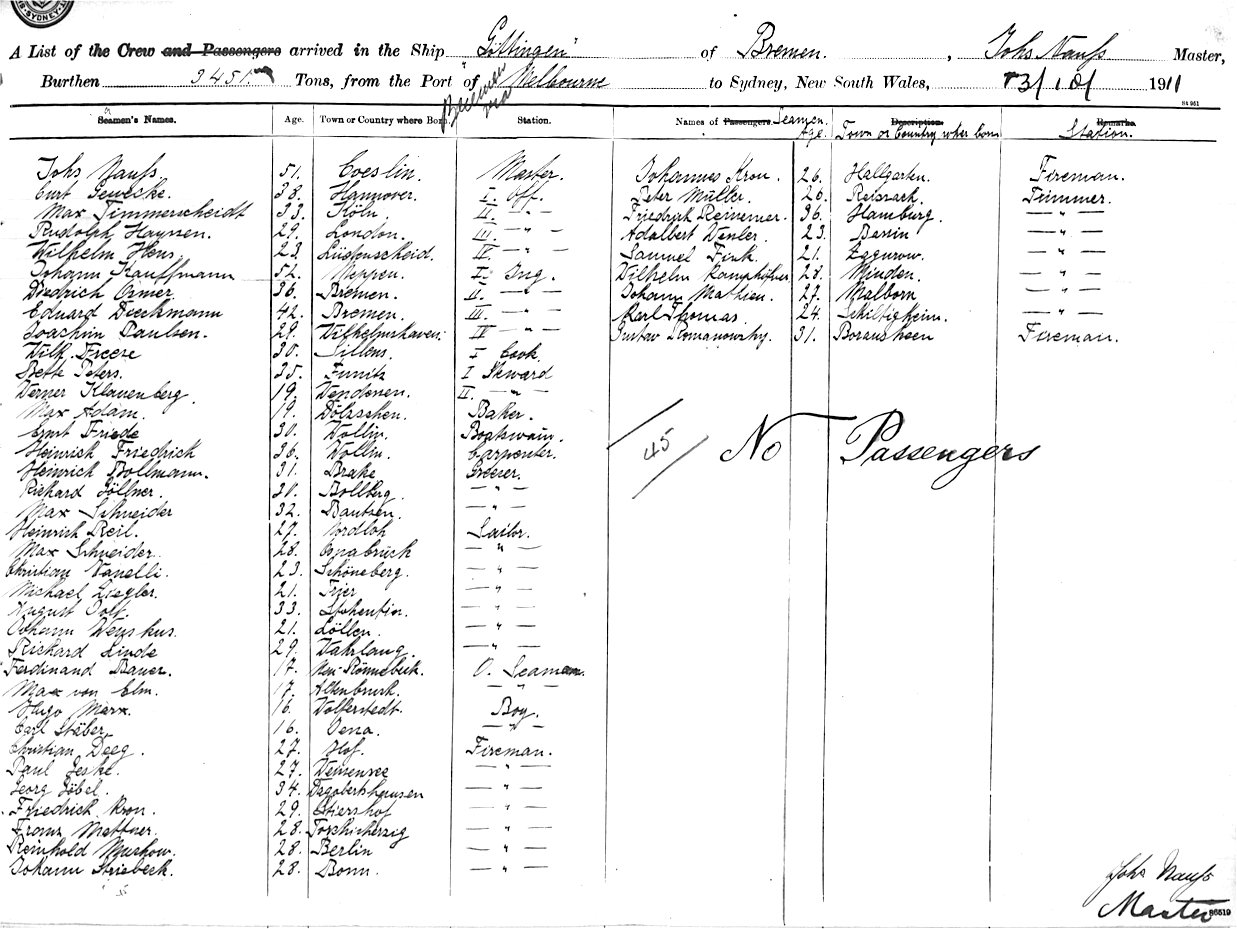 SYDNEY
A List of the Crew and Passengers arrived in the Ship "Göttingen" of Bremen, Johs Nauss Master,
Burthen 3451 Tons, from the Port of Bremen via Melbourne to Sydney, New South Wales, 191
S4 951
Seamen's Names. Age. Town or Country where Born. Station. Names of Passengers. Seamen. Age. Description. Town or Country wher born Remarks. Station.
Johs Nauss 51. Coeslin. Master. Johannes Kron. 26. Hallgarten. Fireman.
Curt Geweske. 38. Hannover. I. Off. Peter Müller. 26. Trimmer.
Max Timmerscheidt 33. Köln. II. — " — Friedrich Reinemer. 36. Hamburg. — " —
Rudolph Hayssen. 29. London. III. — " — Adalbert 23. — " —
Wilhelm Hens 23. Lüdenscheid. IV — " — Samuel Fink. 21. — " —
Johann Kauffmann 52. I. Ing. Wilhelm 28. Minden. — " —
Diedrich 36. Bremen. II. — " — Johann Mathieu. 27. Malborn — " —
Eduard Dieckmann 42. Bremen. III. — " — Karl Thomas. 24. Schiltigheim. — " —
Joachim Paulsen. 29. Wilhelmshaven. IV — " — Gustav 31. Fireman.
Wilh. Freese 30. Sillens. I Cook
Peters. 35. I Steward
Werner Klauenberg. 19. Wendenen. II. — " —
Max Adam. 19. Dölzschen. Baker.
Ernst Friede 30. Wollin. Boatswain.
Heinrich Friedrich 36. Wollin. Carpenter.
Heinrich Bollmann. 31. Brake Greeser.
Richard Zöllner. 30. Bollberg. — " —
Max Schneider 32. Bautzen. — " —
Heinrich Reil. 27. Nordloh Sailor.
Max Schneider. 28. Osnabrück — " —
Christian Nanelli. 23. Schöneberg. — " —
Michael Ziegler. 21. Trier — " —
August 33. — " —
Johann Wenskus. 21. Löllen. — " —
Richard Linde 29. — " —
Ferdinand Bauer. 17. Neu-Rönnebeck. O. Seaman.
Max von Elm. 17. Altenbruch. — " —
Hugo Marx. 16. Volkerstedt. Boy.
Carl Stäber 16. — " —
Christian Deeg. 27. Hof. Fireman.
Paul Jeske. 27. Weissensee — " —
Georg Göbel. 34. Dagobertshausen — " —
Friedrich Kron. 29. — " —
Franz Mattner. 28. Tschicherzig — " —
Reinhold 28. Berlin — " —
Johann Striebeck. 28. Bonn. — " —
45 No Passengers
Johs Nauss
Master
86519